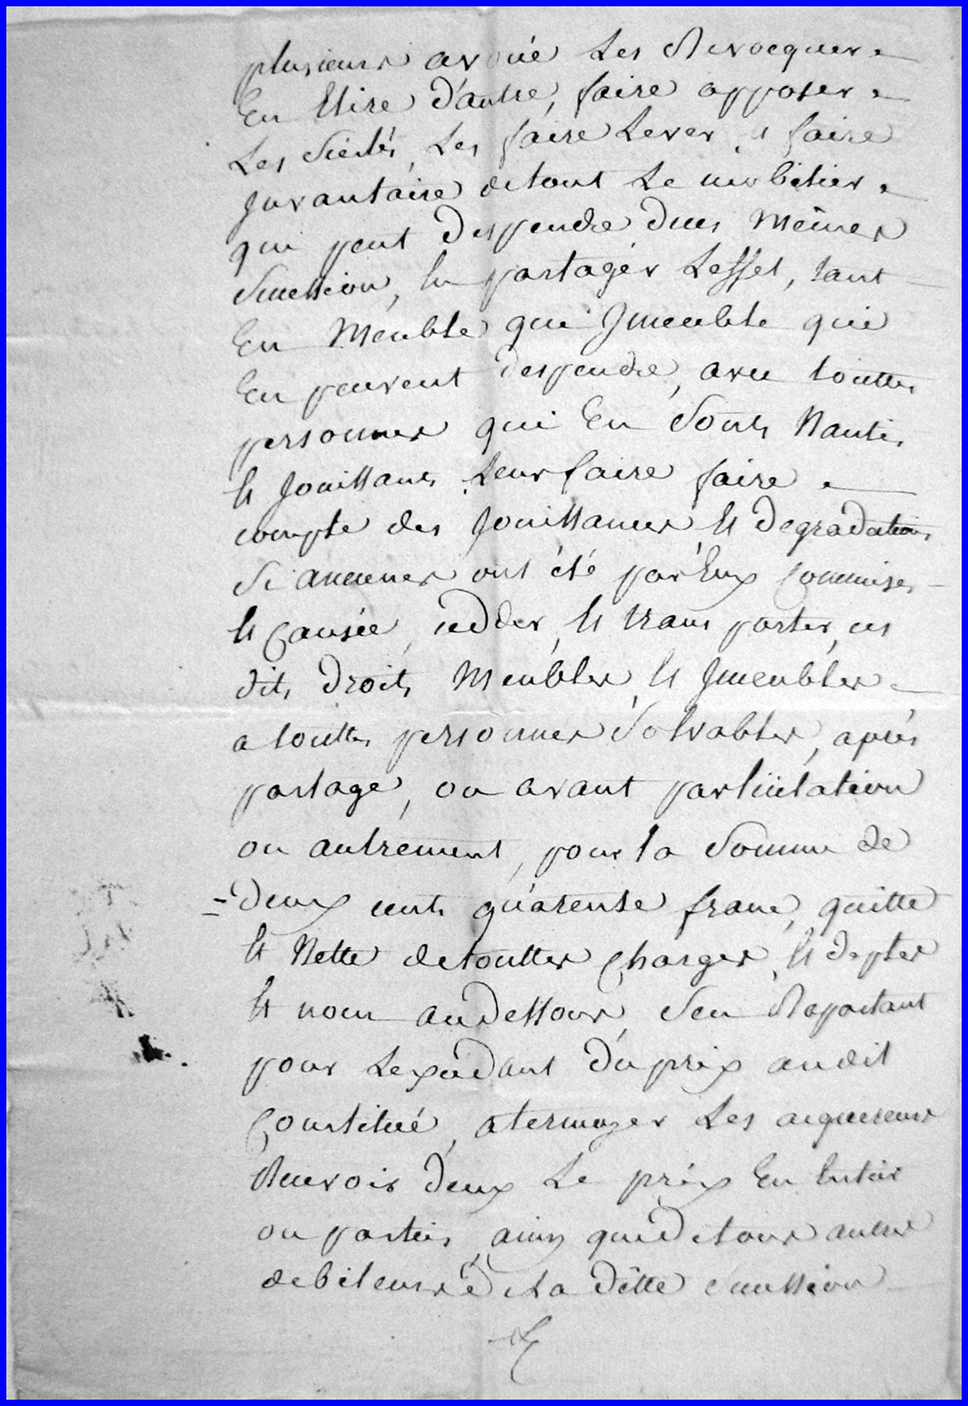 plusieurs avoué Les Revocquer
En Elire d'autre, faire apposer
Les Scelés, Les faire Lever, et faire
Jnvantaire de tout Le mobilier
qui peut despendre dues Mêmes
Sucession, En partager Leffet, tant
En Meuble que Jmeuble qui
En peuvent despendre, avec touttes
personnes qui En Sonts Nantis
Et Jouissants Leur faire faire
compte des Jouissances Et degradations
Si aucunes ont été par Eux Commises
Et Causée, cedder, Et trans porter, ces
dits droits Meubles, Et Jmeubles
a touttes personnes Solvables, après
partage, ou avant par licitation
ou autrement, pour la Somme de
deux cents quarente franc, quitte
Et Nette de touttes Charges, Et deptes
Et non au dessous, S'en Raportant
pour Lexcedant du prix au dit
Constitué, atermoyer Les acquereurs
Recevoir d'eux Le prix En Entier
ou partie, ainsy que de tous autres
debiteurs de La ditte Sucession